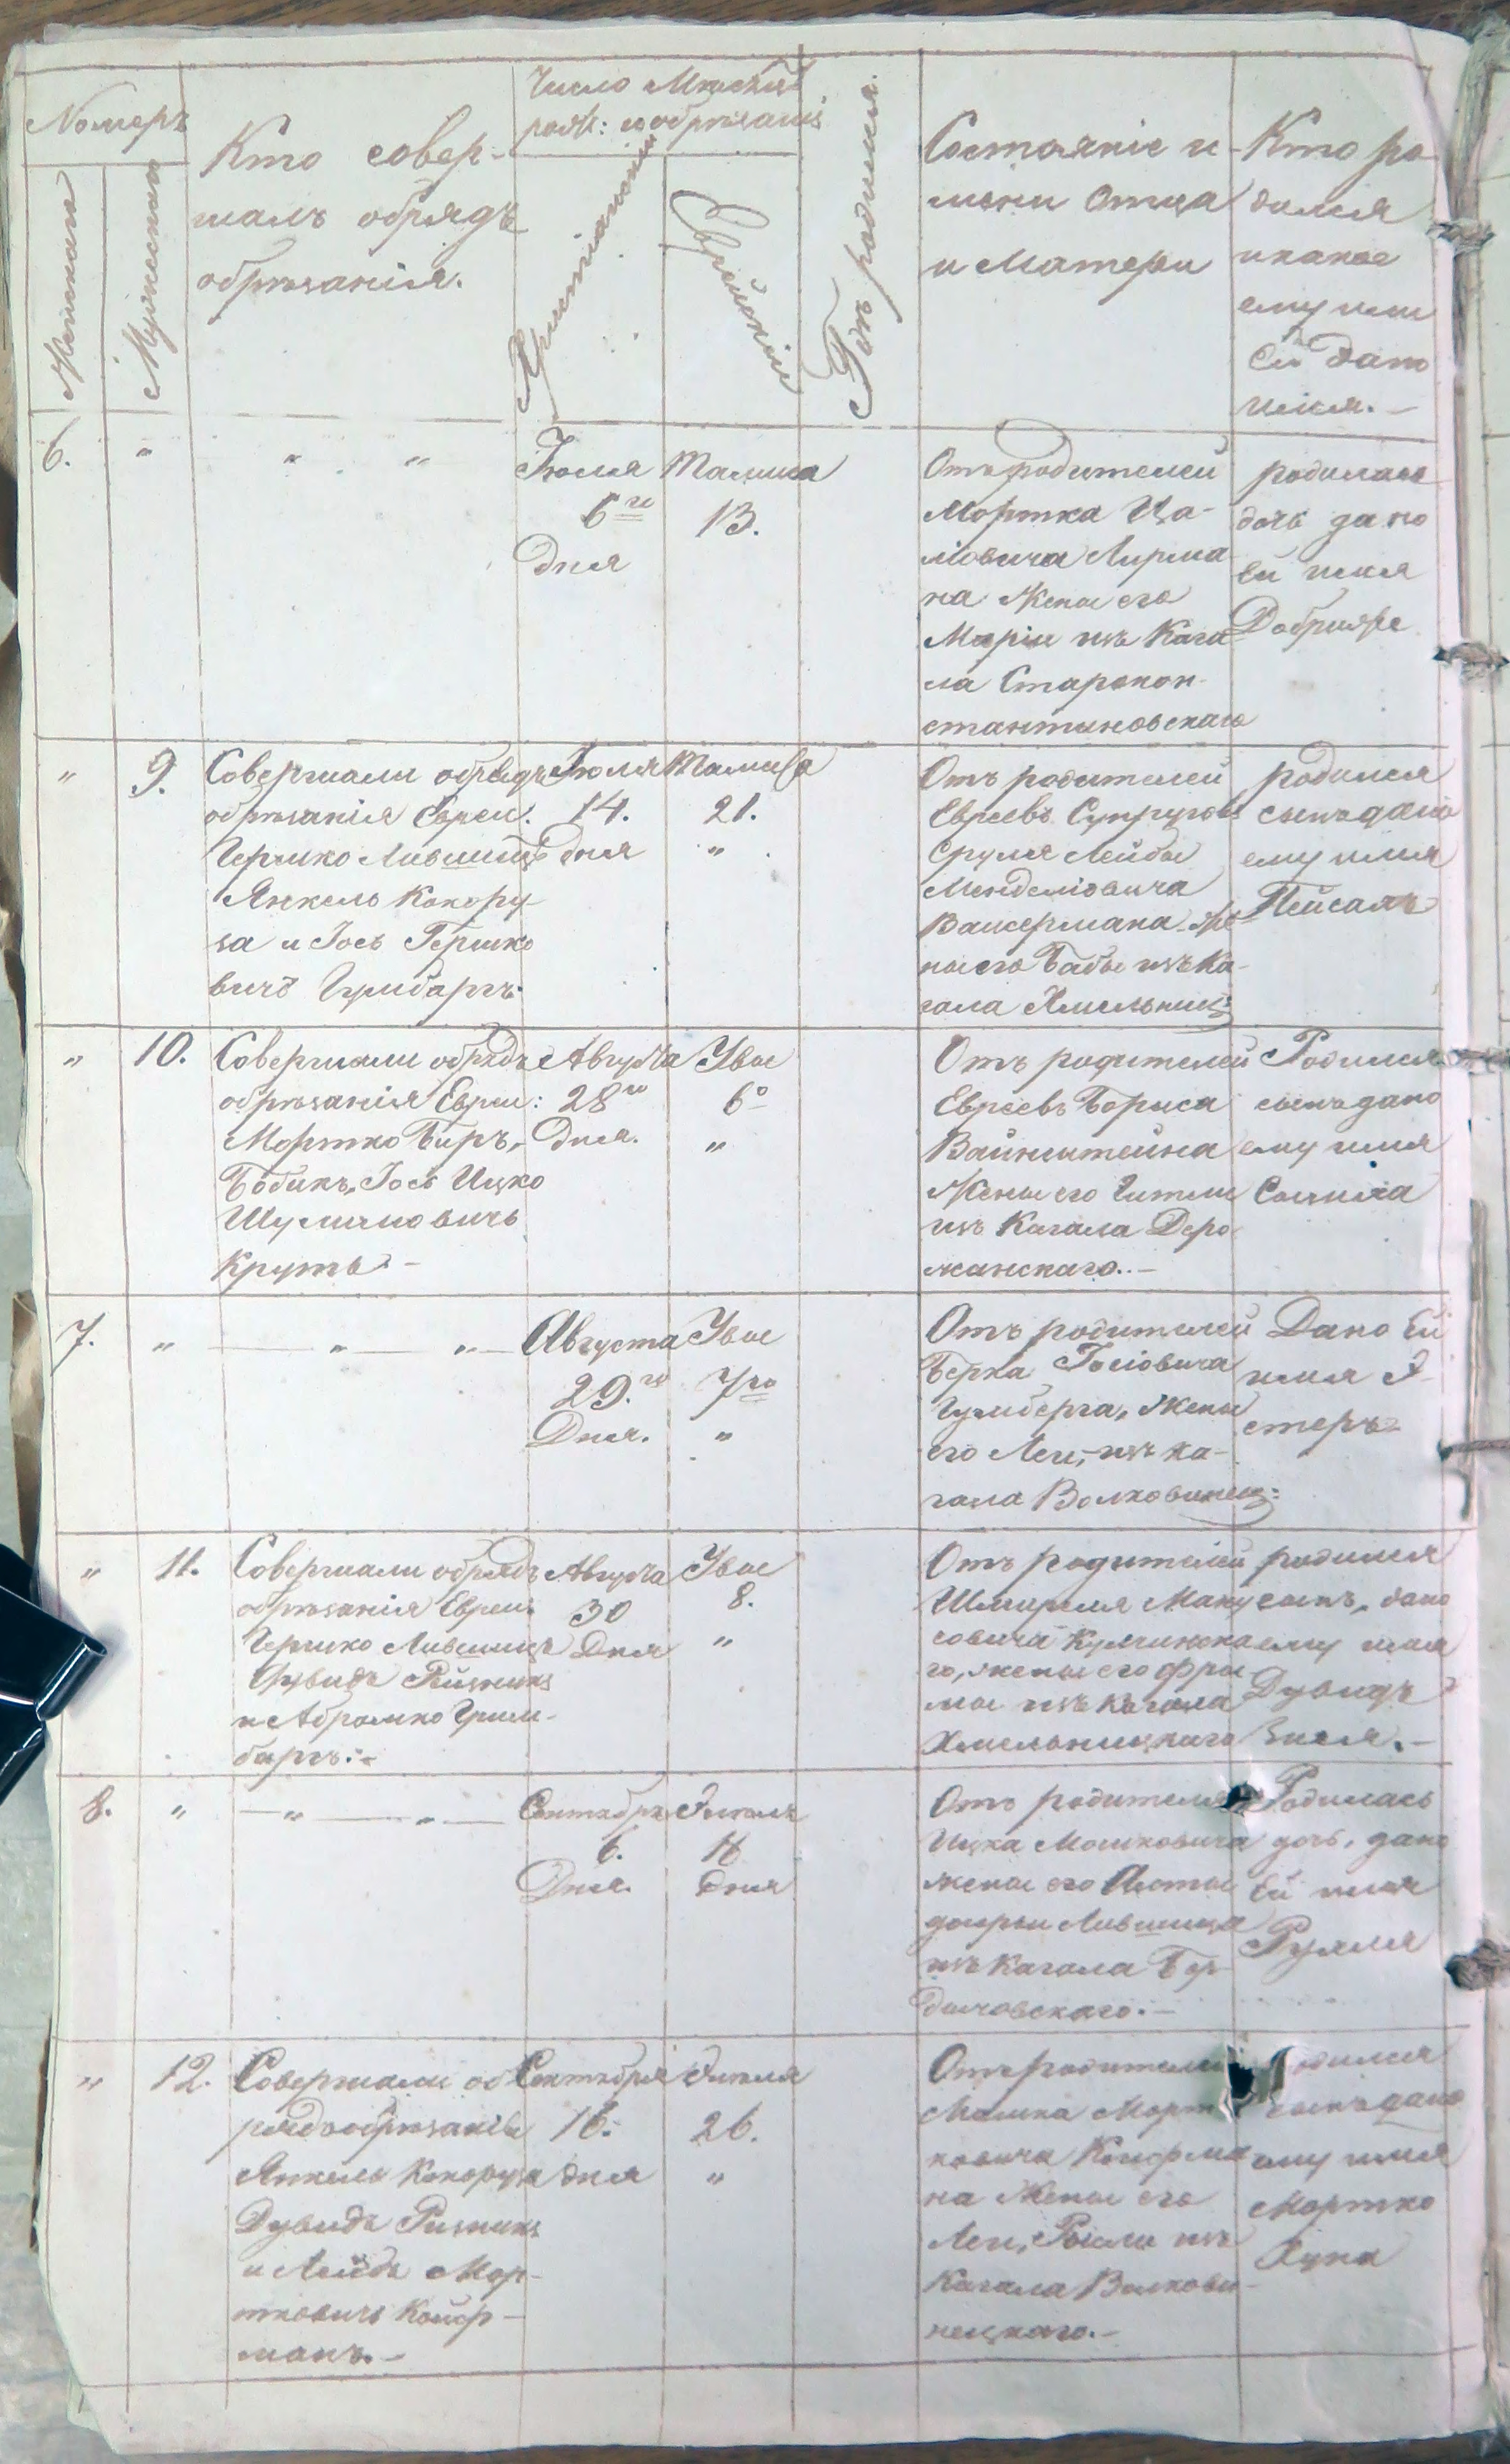 Номеръ
Женскаго
Мужескаго
Кто совер-
шалъ обрядъ
обрѣзанія.
Число Мѣсяцъ
рожд: и обрѣзанія
Христіанскій
Еврейскій
Гдѣ родился
Состояніе и
имени Отца
и Матери
Кто ро
дился
и какое
ему или
Ей дано
имя.-
6. " " "
Іюля
6го
Дня
Тамуза
13.
Отъ родителей
Мортка Ща-
ліовича Лирма
на Жены его
Маріи изъ Кага
ла Старокон-
стантиновскаго
родилась
дочь дано
Ей имя
" 9.
Совершали обрядъ
обрѣзанія Евреи:
Гершко Лившицъ
Янкель Кокору
за и Іось Гершко
вичъ Гумбаргъ.
Іюля
14.
дня
Тамуза
21.
"
Отъ родителей
Евреевъ Супруговъ
Сруля Лейбы
Менделіовича
Вайсермана Же
ны его Бабы изъ Ка-
гала Хмельниц:
родился
сынъ дано
ему имя
Пейсахъ
" 10.
Совершали обрядъ
обрѣзанія Евреи:
Мортко Биръ,
Бобикъ, Іось Ицко
Шулимовичъ
Крутъ -
Августа
28го
Дня.
Увле
6о
"
Отъ родителей
Евреевъ Бориса
Вайнштейна
Жены его Гители
изъ Кагала Деро
жанскаго.-
Родился
сынъ дано
ему имя
Симха
7. " " "
Августа
29.го
Дня.
Увле
7го
"
Отъ родителей
Берка Іосіовича
Гумберга, Жены
его Леи, изъ ка-
гала Волковинец:
Дано Ей
имя Э-
стеръ
" 11.
Совершали обрядъ
обрѣзанія Евреи:
Гершко Лившицъ
Дувидъ Рѣзникъ
и Абрамко Гум-
баргъ.-
Августа
30
Дня
Увле
8.
"
Отъ родителей
ШмереляМану
совича Кулчинска
го, жены его Фри
мы изъ Кагала
Хмельницкаго
родился
сынъ, дано
ему имя
Дувидъ
Зися.-
8. " " "
Сентябрь
6.
Дня.
16
дня
Отъ родителя
Ицка Мошковича
жены его
дочери Лившица
изъ Кагала Бер
дичовскаго.-
Родилась
дочь, дано
Ей имя
Рухля
" 12.
Совершали об
рядъ обрѣзанія
Янкель Кокоруза
Дувидъ Рѣзникъ
и Лейба Мор-
тковичъ Койфр-
манъ.-
Сентября
16.
дня
Элюля
26.
"
Отъ родителей
Мошка Морт
ковича Койфрма
на Жены его
Леи, Рысли изъ
Кагала Волкови-
нецкаго.-
одился
сынъ дано
ему имя
Мортко